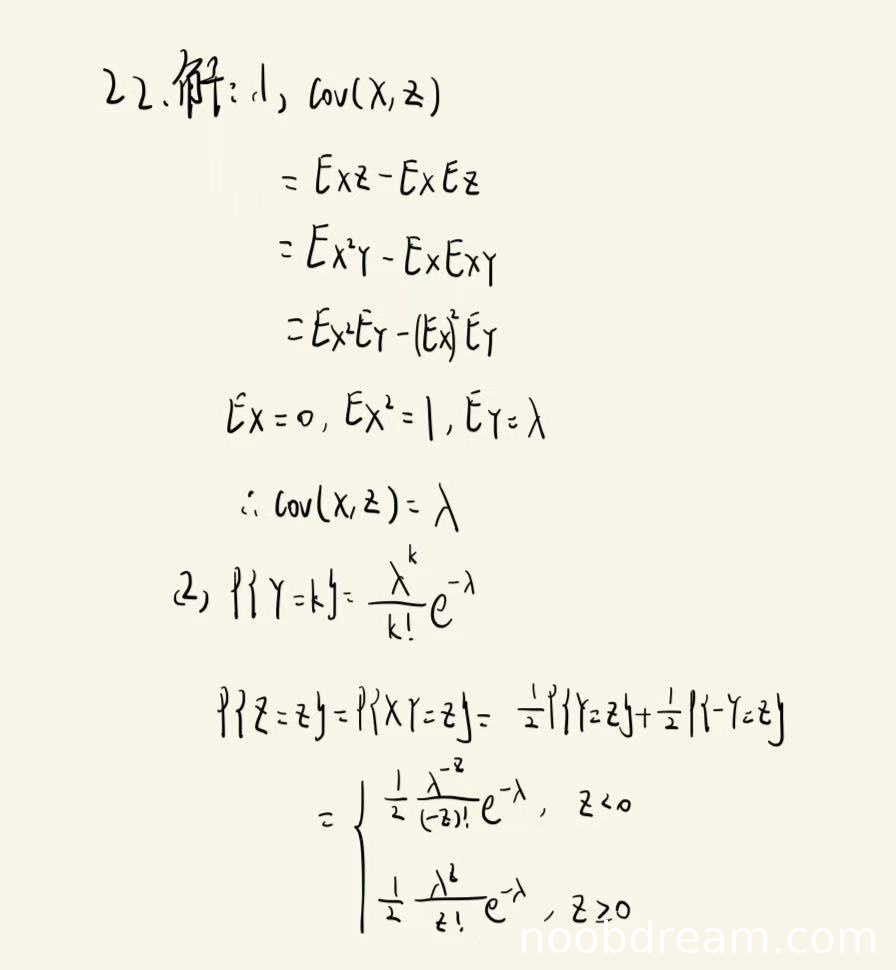 22.解:(1) Cov(X,Z)
= EXZ - EXEZ
= EX²Y - EXEXY
= EX²EY - (EX)²EY
EX=0, EX²=1, EY=λ
∴ Cov(X,Z)= λ
(2) P{Y=k}= λ^k/k! e^{-λ}
P{Z=z}=P{XY=z}= 1/2 P{Y=z}+1/2 P{-Y=z}
= { 1/2 λ^{-z}/(-z)! e^{-λ}, z<0
1/2 λ^z/z! e^{-λ}, z≥0
noobdream.com